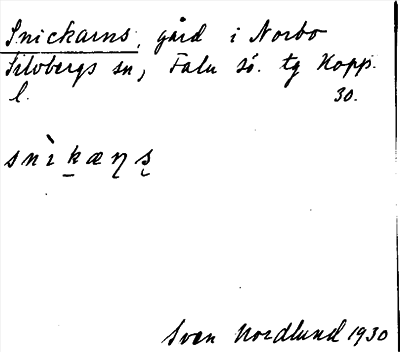 Snickarns, gård i Norbo
Silvbergs sn, Falu sö. tg Kopp.
l. 30.
snìk̲æɳʂ
Sven Nordlund 1930